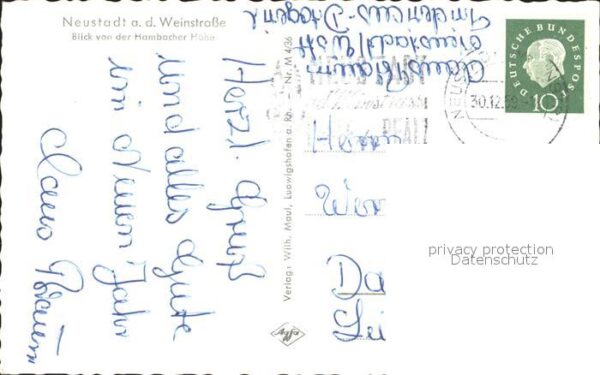 Neustadt a. d. Weinstraße
Blick von der Hambacher Höhe
Herzl. Gruß
und alles Gute
im Neuen Jahr
Claus Braun
Verlag: Wilh. Maul, Ludwigshafen a. Rh. - Nr. M 4/36
Agfa
Claus Braun
Neustadt/Wstr
DEUTSCHE BUNDESPOST
10
30.12.59
Herrn
Wer
Da
Lei
privacy protection
Datenschutz